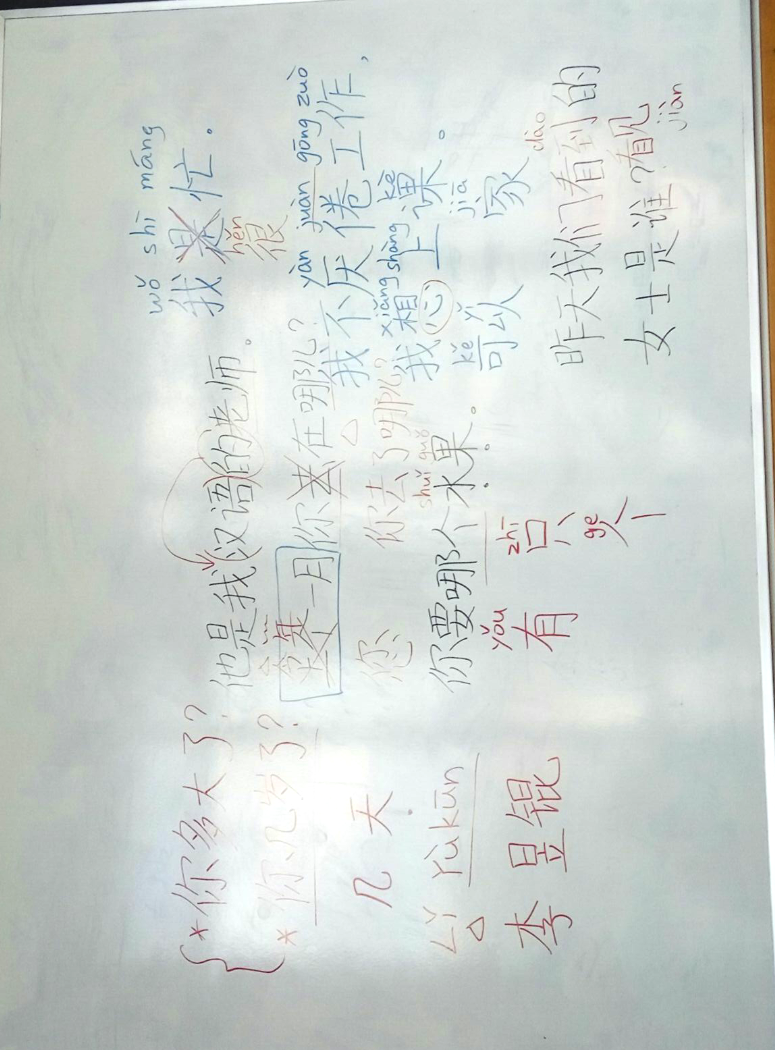 *你多大了?
*你几岁了?
几天
Lǐ Yùkūn
李昱锟
他是我汉语的老师。
一月你去在哪儿?
您 你去了哪儿?
shuǐ guǒ
你要哪个水果。
yǒu zhī
有 只
ge
个
wǒ shì máng
我是忙。
hěn
很
yàn juàn gōng zuò
我不厌倦工作,
xiǎng shàng kè
我想上课。
kě yǐ jiā
可以 家
dào
昨天我们看到的
女士是谁?看见
jiàn